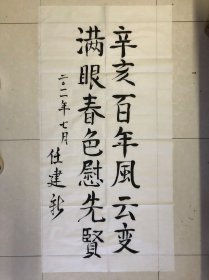 辛亥百年風云变
满眼春色慰先賢
二〇一一年七月
任建新